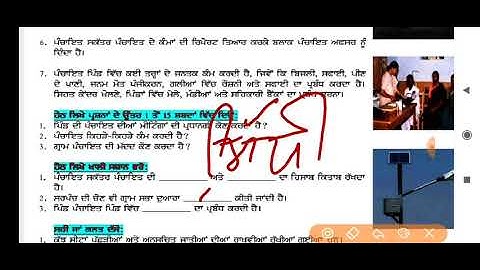 6. ਪੰਚਾਇਤ ਸਕੱਤਰ ਪੰਚਾਇਤ ਦੇ ਕੰਮਾਂ ਦੀ ਰਿਪੋਰਟ ਤਿਆਰ ਕਰਕੇ ਬਲਾਕ ਪੰਚਾਇਤ ਅਫਸਰ ਨੂੰ
ਦਿੰਦਾ ਹੈ।
7. ਪੰਚਾਇਤ ਪਿੰਡ ਵਿੱਚ ਕਈ ਤਰ੍ਹਾਂ ਦੇ ਜਨਤਕ ਕੰਮ ਕਰਦੀ ਹੈ, ਜਿਵੇਂ ਕਿ ਬਿਜਲੀ, ਸਫਾਈ, ਪੀਣ
ਦੇ ਪਾਣੀ, ਜਨਮ ਮੌਤ ਪੰਜੀਕਰਨ, ਗਲੀਆਂ ਵਿੱਚ ਰੌਸ਼ਨੀ ਅਤੇ ਸਫਾਈ ਦਾ ਪ੍ਰਬੰਧ ਕਰਦੀ ਹੈ।
ਸਿਹਤ ਕੇਂਦਰ ਖੋਲਣੇ, ਪਿੰਡਾਂ ਵਿੱਚ ਮੇਲੇ, ਮੰਡੀਆਂ ਅਤੇ ਸਹਿਕਾਰੀ ਬੈਂਕਾਂ ਦਾ ਪ੍ਰਬੰਧ ਕਰਨਾ।
ਹੇਠ ਲਿਖੇ ਪ੍ਰਸ਼ਨਾਂ ਦੇ ਉੱਤਰ 1 ਤੋਂ 15 ਸ਼ਬਦਾਂ ਵਿੱਚ ਦਿਓ:
1. ਪਿੰਡ ਦੀ ਪੰਚਾਇਤ ਦੀਆਂ ਮੀਟਿੰਗਾਂ ਦੀ ਪ੍ਰਧਾਨਗੀ ਕੌਣ ਕਰਦਾ ਹੈ?
2. ਪੰਚਾਇਤ ਕਿਹੜੇ-ਕਿਹੜੇ ਕੰਮ ਕਰਦੀ ਹੈ?
3. ਗ੍ਰਾਮ ਪੰਚਾਇਤ ਦੀ ਮੱਦਦ ਕੌਣ ਕਰਦਾ ਹੈ?
ਹੇਠ ਲਿਖੇ ਖਾਲੀ ਸਥਾਨ ਭਰੋ:
1. ਪੰਚਾਇਤ ਸਕੱਤਰ ਪੰਚਾਇਤ ਦੀ ________ ਅਤੇ ________ ਦਾ ਹਿਸਾਬ ਕਿਤਾਬ ਰੱਖਦਾ
ਹੈ।
2. ਸਰਪੰਚ ਦੀ ਚੋਣ ਵੀ ਗ੍ਰਾਮ ਸਭਾ ਦੁਆਰਾ ________ ਕੀਤੀ ਜਾਂਦੀ ਹੈ।
3. ਪਿੰਡ ਪੰਚਾਇਤ ਪਿੰਡ ਵਿੱਚ ________ ਦਾ ਪ੍ਰਬੰਧ ਕਰਦੀ ਹੈ।
ਸਹੀ ਜਾਂ ਗਲਤ ਦੱਸੋ:
1. ਕੁੱਝ ਸੀਟਾਂ ਪੱਛੜੀਆਂ ਅਤੇ ਅਨੁਸੂਚਿਤ ਜਾਤੀਆਂ ਦੀਆਂ ਰਾਖਵੀਆਂ ਰੱਖੀਆਂ ਗਈਆਂ ਹਨ।